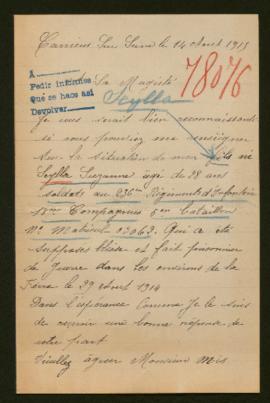 Carrieres Sur Seine le 14 Aout 1915
A
Pedir informes
Que se haga así
Devolver
Sa Magésté
78076
Scylla
Je vous serait bien reconnaissante
si vous pouviez me renseigner
Sur la Situation de mon fils
Scylla Suzanne agé de 28 ans
soldats au 236me Régiments d'Infanterie
17me Compagnies 5me bataillon
No Matricule 03063. Qui a été
supposés blessé et fait prisonnier
de Guerre dans les environs de la
Fère le 29 Aout 1914
Dans l'espérance Comme Je le suis
de recevoir une bonne réponse de
votre part
Veuillez agréer Monsieur mes